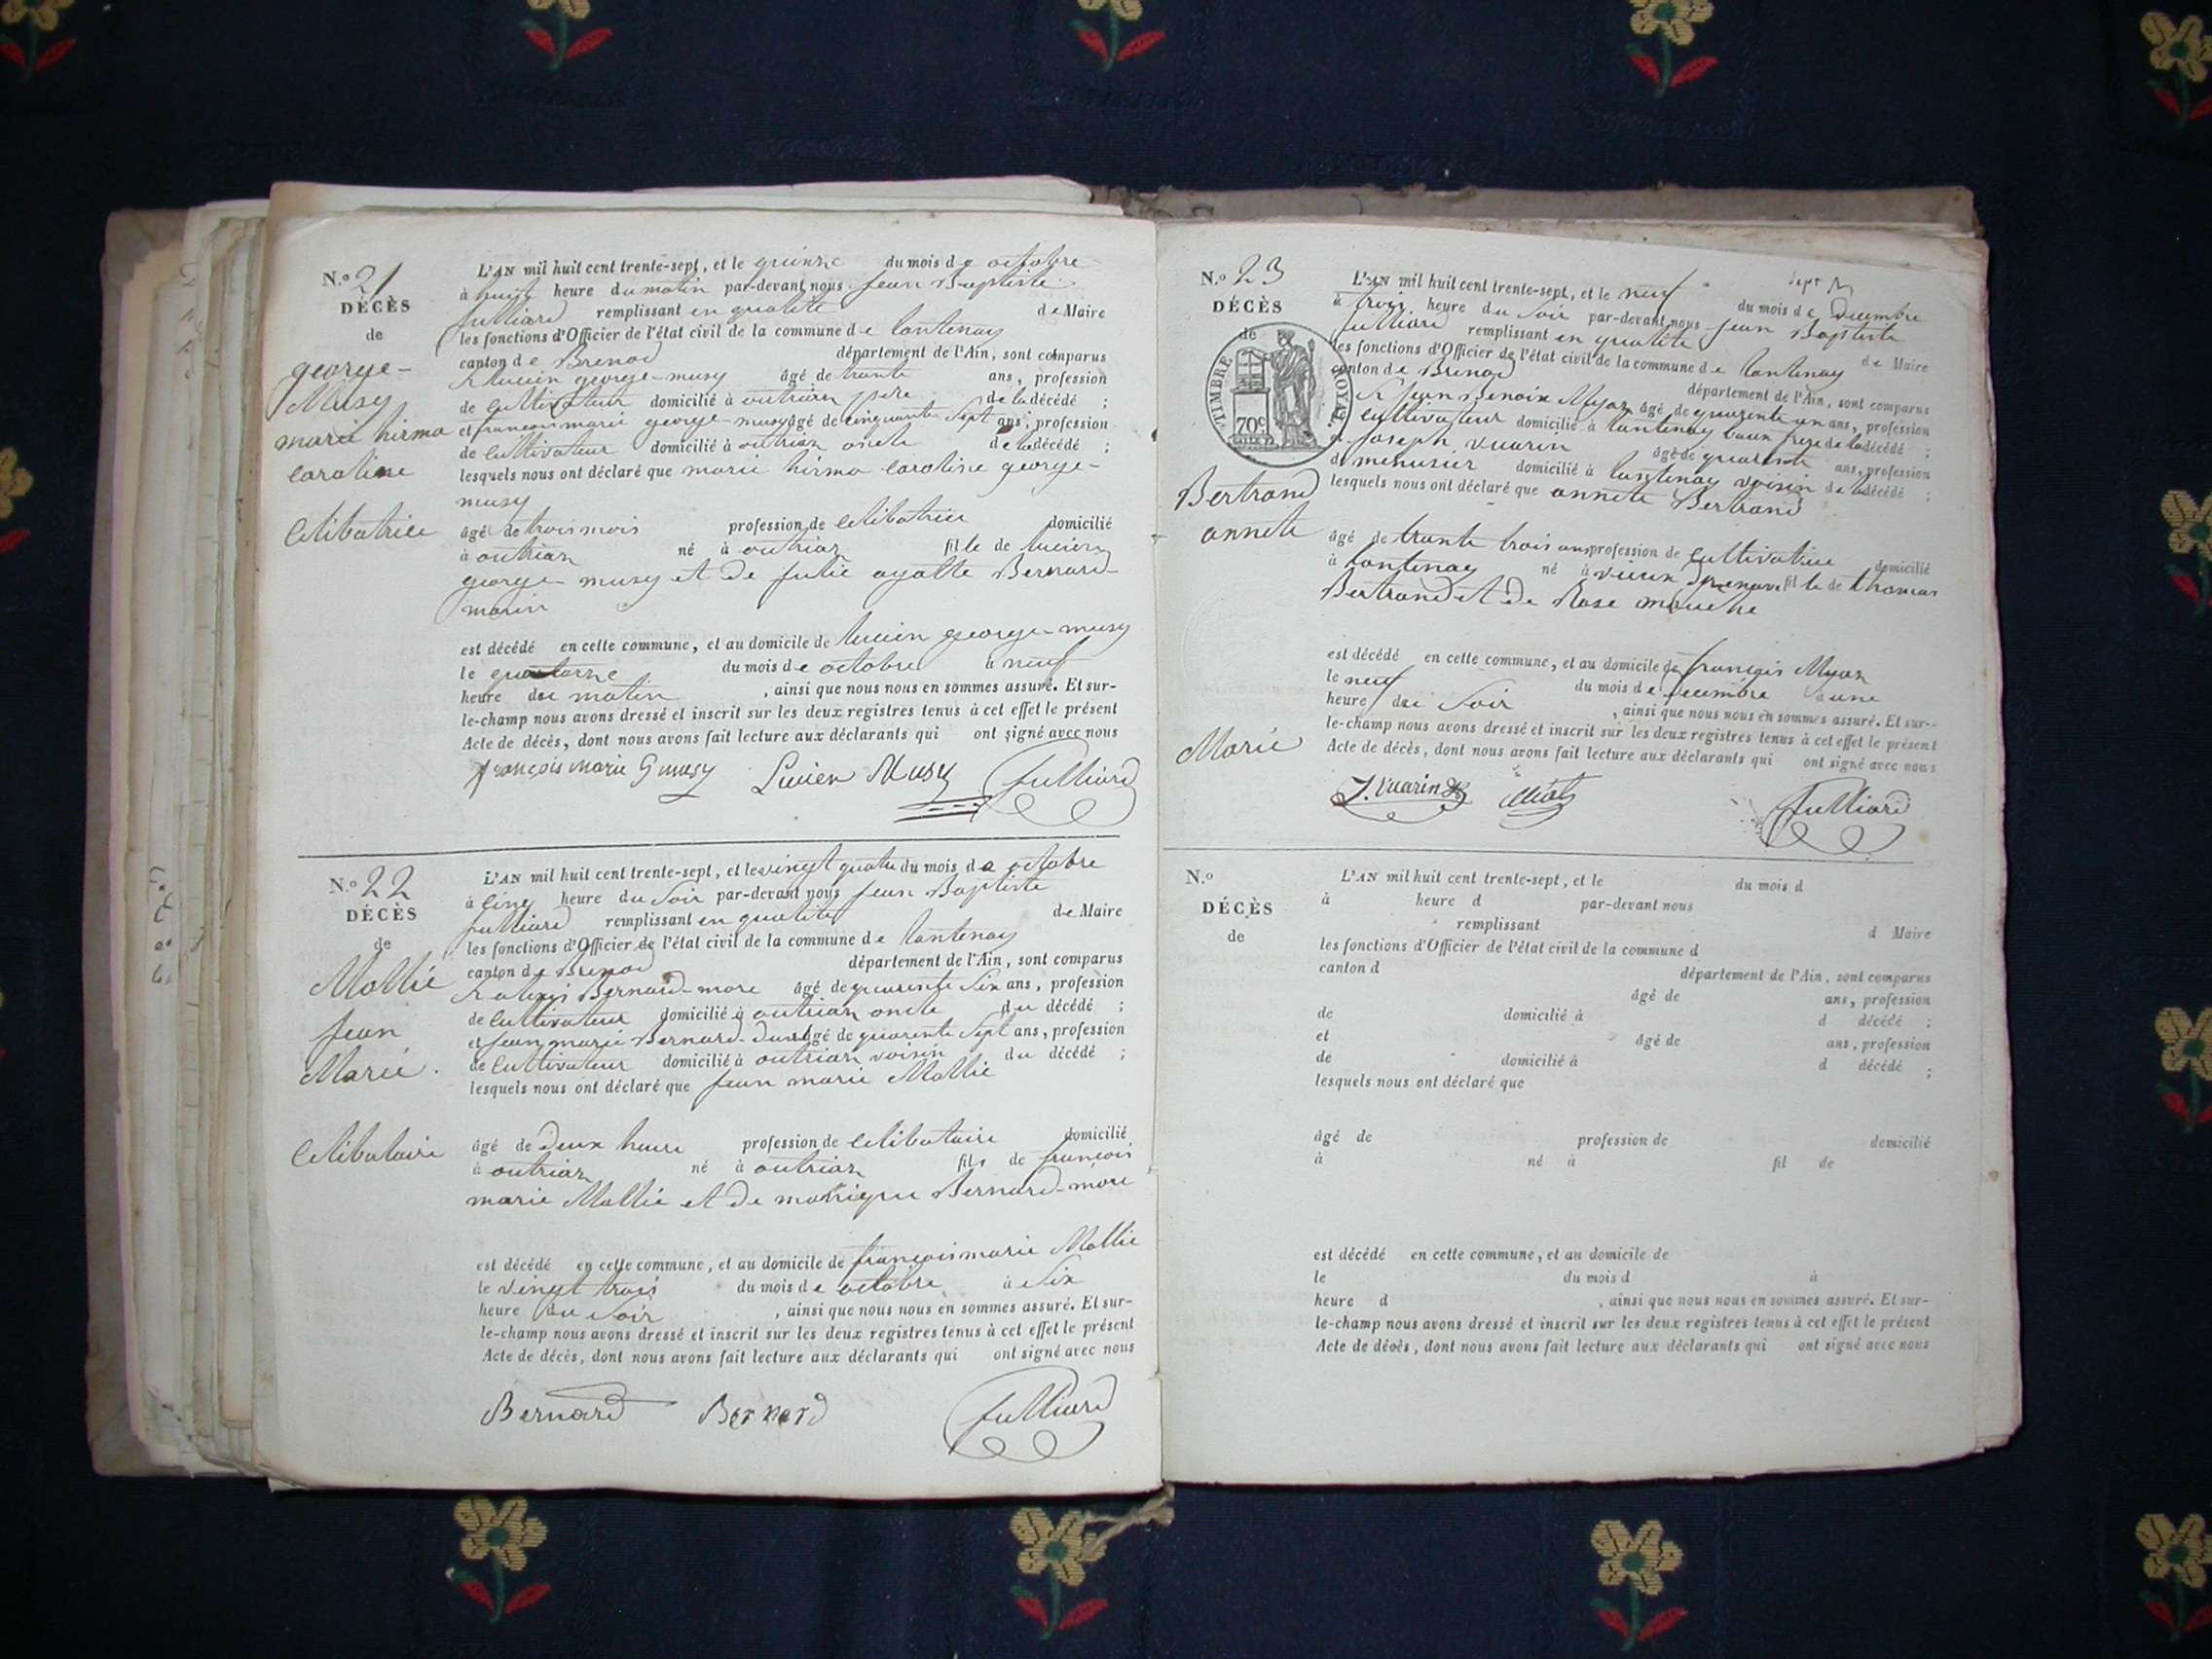 N.º 21
DÉCÈS
de
george-
Musy
marie hirma
caroline
Celibatrice
L'AN mil huit cent trente-sept, et le quinze du mois de octobre
à huit heure du matin par-devant nous Jean Baptiste
Julliard remplissant en qualité de Maire
les fonctions d'Officier de l'état civil de la commune de lantenay
canton de Brenod département de l'Ain, sont comparus
lucien george-musy âgé de trante ans, profession
de Cultivateur domicilié à outriaz pere de la décédé ;
et francois marie george-musy âgé de cinquante Sept ans, profession
de Cultivateur domicilié à outriaz oncle de la décédé ;
lesquels nous ont déclaré que marie hirma caroline george-
musy
âgé de trois mois profession de celibatrice domicilié
à outriaz né à outriaz fille de lucien
george-musy et de Julie Bernard-
marin
est décédé en cette commune, et au domicile de lucien george-musy
le quatorze du mois de octobre à neuf
heure du matin , ainsi que nous nous en sommes assuré. Et sur-
le-champ nous avons dressé et inscrit sur les deux registres tenus à cet effet le présent
Acte de décès, dont nous avons fait lecture aux déclarants qui ont signé avec nous
françois marie G musy Lucien Musy Julliard
N.º 22
DÉCÈS
de
Mollie
Jean
Marie.
Celibataire
L'AN mil huit cent trente-sept, et le vingt quatre du mois de octobre
à cinq heure du Soir par-devant nous Jean Baptiste
Julliard remplissant en qualité de Maire
les fonctions d'Officier de l'état civil de la commune de lantenay
canton de Brenod département de l'Ain, sont comparus
alexis Bernard-more âgé de quarente Six ans, profession
de Cultivateur domicilié à outriaz oncle du décédé ;
et Jean marie Bernard- âgé de quarente Sept ans, profession
de Cultivateur domicilié à outriaz voisin du décédé ;
lesquels nous ont déclaré que Jean marie Mollie
âgé de deux heure profession de celibataire domicilié
à outriaz né à outriaz fils de francois
marie Mollie et de monique Bernard-more
est décédé en cette commune, et au domicile de francois marie Mollie
le vingt trois du mois de octobre à Six
heure du Soir , ainsi que nous nous en sommes assuré. Et sur-
le-champ nous avons dressé et inscrit sur les deux registres tenus à cet effet le présent
Acte de décès, dont nous avons fait lecture aux déclarants qui ont signé avec nous
Bernard Bernard Julliard
N.º 23
DÉCÈS
de
TIMBRE ROYAL.
70c
Bertrand
annete
Marie
L'AN mil huit cent trente-sept, et le neuf du mois de Decembre
à trois heure du Soir par-devant nous Jean Baptiste
Julliard remplissant en qualité de Maire
les fonctions d'Officier de l'état civil de la commune de lantenay
canton de Brenod département de l'Ain, sont comparus
Jean Benoix âgé de quarente un ans, profession
cultivateur domicilié à lantenay beaux frere de la décédé ;
Joseph vuarin âgé de quarente ans, profession
de menusier domicilié à lantenay voisin de la décédé ;
lesquels nous ont déclaré que annete Bertrand
âgé de trante trois ans profession de cultivatrice domicilié
à lantenay né à vieux fille de thomas
Bertrand et de Rose mouche
est décédé en cette commune, et au domicile de francois
le neuf du mois de decembre à une
heure du Soir , ainsi que nous nous en sommes assuré. Et sur-
le-champ nous avons dressé et inscrit sur les deux registres tenus à cet effet le présent
Acte de décès, dont nous avons fait lecture aux déclarants qui ont signé avec nous
J. Vuarin Julliard
N.º
DÉCÈS
de
L'AN mil huit cent trente-sept, et le du mois d
à heure d par-devant nous
remplissant d Maire
les fonctions d'Officier de l'état civil de la commune d
canton d département de l'Ain, sont comparus
âgé de ans, profession
de domicilié à d décédé ;
et âgé de ans, profession
de domicilié à d décédé ;
lesquels nous ont déclaré que
âgé de profession de domicilié
à né à fil de
est décédé en cette commune, et au domicile de
le du mois d à
heure d , ainsi que nous nous en sommes assuré. Et sur-
le-champ nous avons dressé et inscrit sur les deux registres tenus à cet effet le présent
Acte de décès, dont nous avons fait lecture aux déclarants qui ont signé avec nous